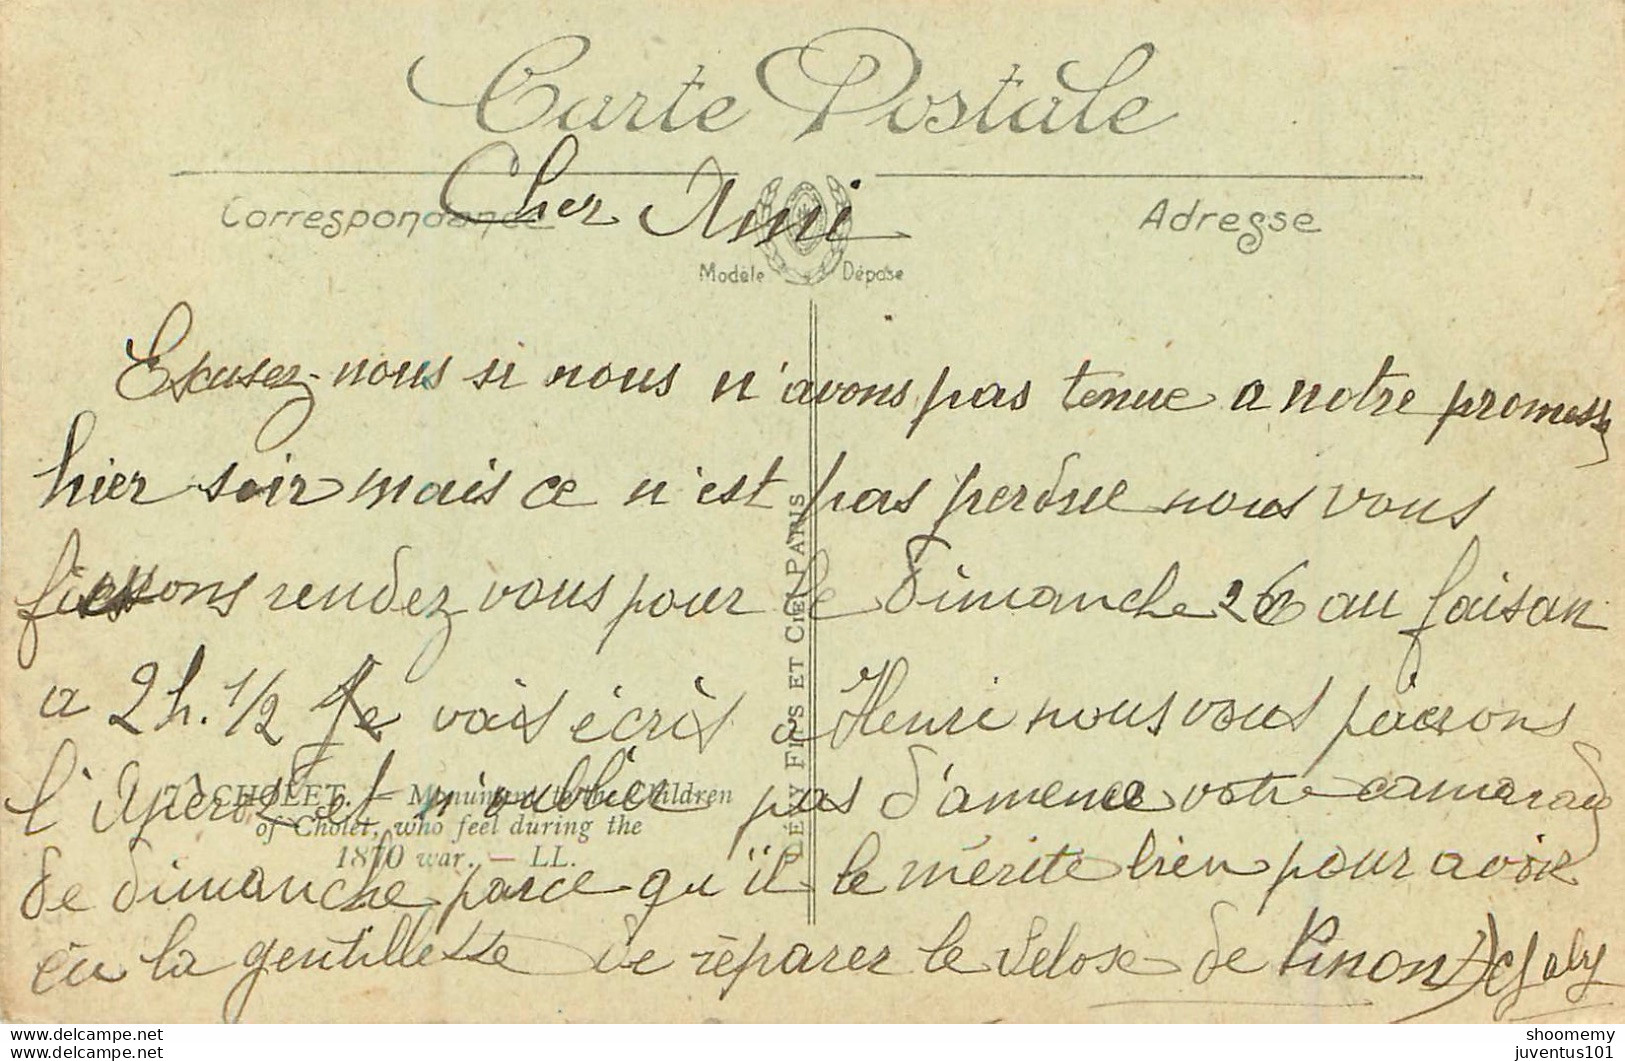 Carte Postale
Correspondance
Adresse
Cher Ami
Modèle Déposé
Excusez-nous si nous n'avons pas tenue a notre promesse
hier soir mais ce n'est pas perdue nous vous
fixons rendez vous pour le dimanche 26 au faisan
a 2h. 1/2 Je vais écris a Henri nous vous paierons
l'Apero et n'oublie pas d'amenee votre camarad
de dimanche parce qu'il le mérite bien pour avoir
eu la gentillesse de réparer le Velose de Pinon
CHOLET. — Monument to the Children
of Cholet, who feel during the
1870 war. — LL.
LÉVY FILS ET CIE, PARIS
shoomemy
juventus101